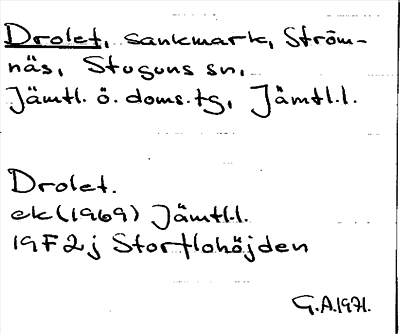 Drolet, sankmark, Ström-
näs, Stuguns sn,
Jämtl. ö. doms.tg, Jämtl.l.
Drolet.
ek(1969) Jämtl.l.
19F2j Storflohöjden
G.A.1971.